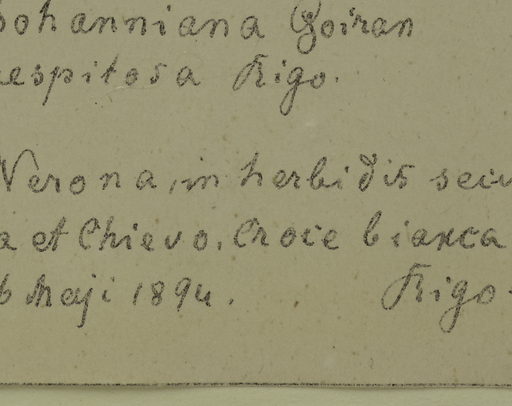 bohanniana Goiran
aespitosa Rigo.
Verona, in herbidis secu
a et Chievo. Croce bianca
6 Maji 1894. Rigo.